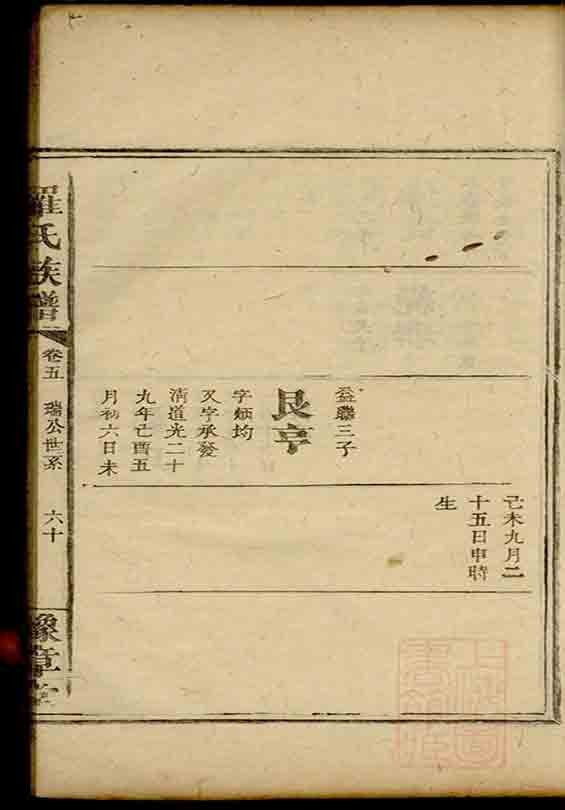 益聯三子
艮亨
字炳均
又字承發
淸道光二十
九年己酉五
月初六日未
己未九月二
十五日申時
生
羅氏族譜
卷五
瑞公世系
六十
豫章堂
上海圖書館藏